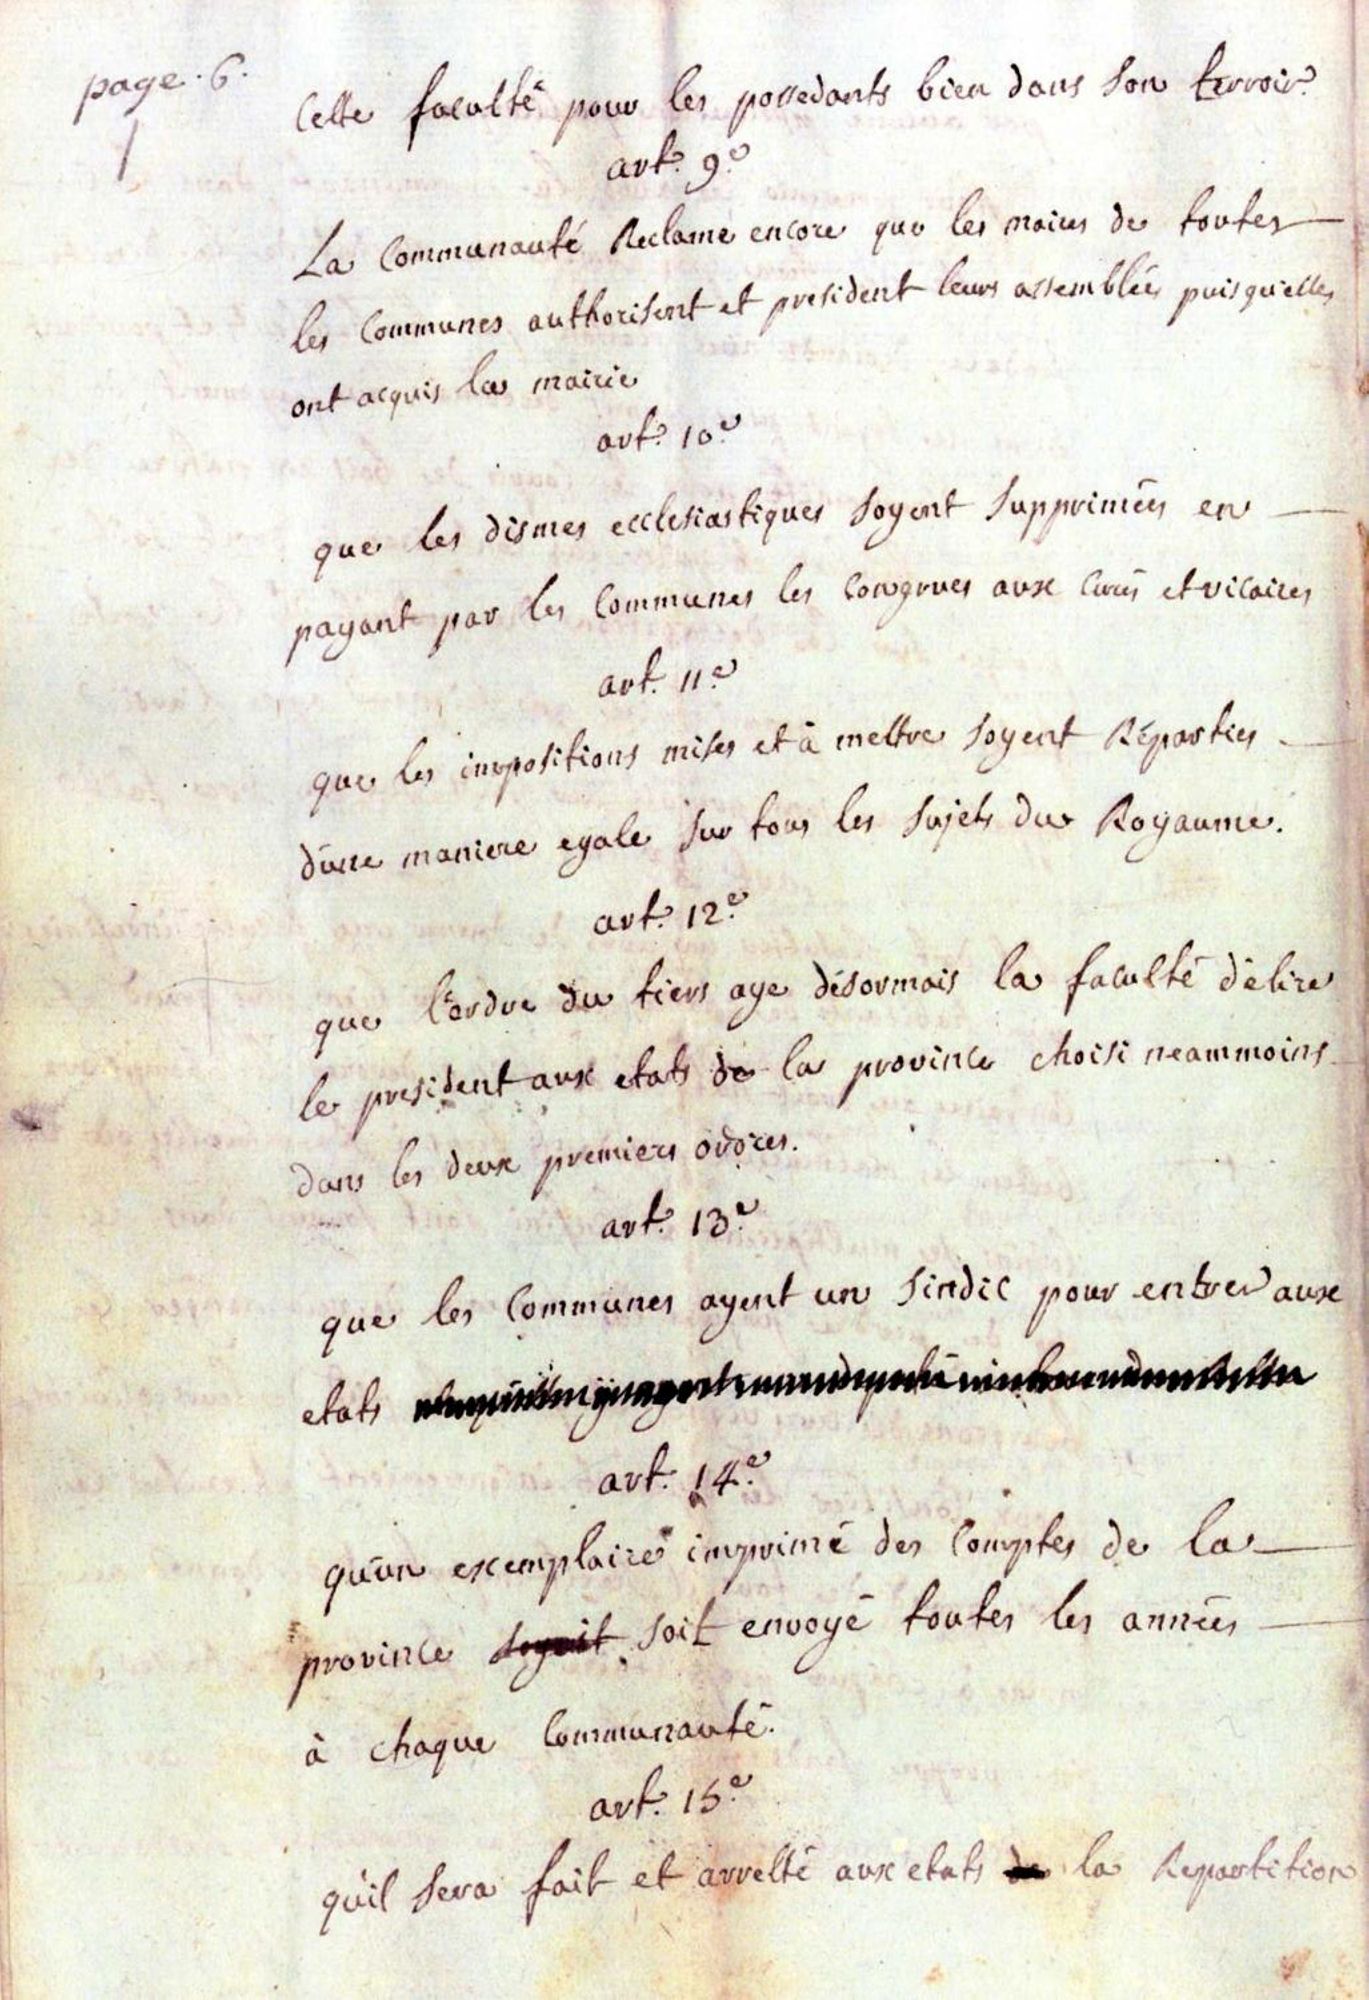 page. 6.
Cette faculté pour les possedants bien dans son terroir.
art. 9.e
La Communauté Reclame encore que les maires de toutes
les Communes authorisent et president leurs assemblées puisqu'elles
ont acquis la mairie
art. 10.e
que les dismes ecclesiastiques soyent supprimées en
payant par les Communes les Congrues aux Curés et vicaires
art. 11.e
que les impositions mises et à mettre soyent Réparties
d'une maniere egale sur tous les sujets du Royaume.
art. 12.e
que l'ordre du tiers aye désormais la faculté d'élire
le president aux etats de la province choisi neammoins
dans les deux premiers ordres.
art. 13.e
que les Communes ayent un sindic pour entrer aux
etats
art. 14.e
qu'un exemplaire imprimé des Comptes de la
province soit envoyé toutes les années
à chaque Communauté.
art. 15.e
qu'il sera fait et arrelté aux etats de la Repartition